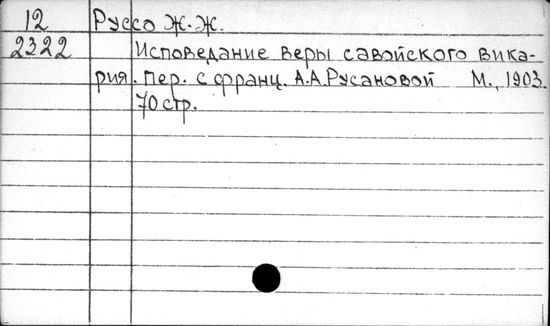 12 Руссо Ж.-Ж.
2322 Исповедание веры савойского вика-
рия. Пер. с франц. А.А.Русановой М., 1903.
70 стр.